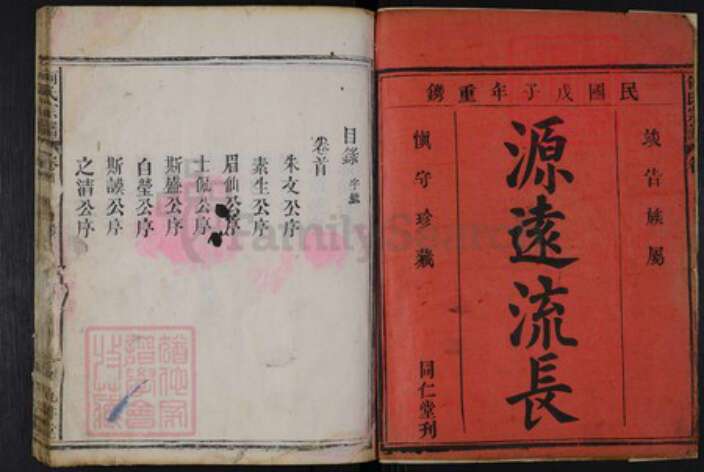 民國戊子年重鐫
竣告族屬
源遠流長
慎守珍藏
同仁堂刊
目錄
卷首
朱文公序
素生公序
眉仙公序
士侃公序
斯盛公序
白瑩公序
斯謨公序
之清公序
FamilySearch